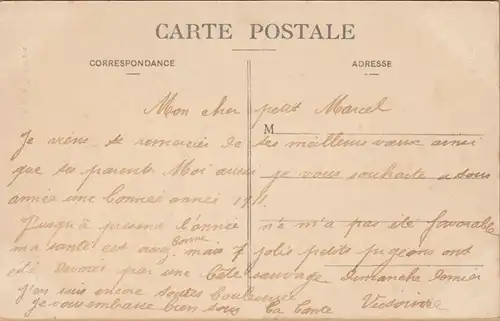 CARTE POSTALE
CORRESPONDANCE
ADRESSE
Mon cher petit Marcel
M
Je viens te remercier de tes meilleurs vœux ainsi
que tes parents Moi aussi je vous souhaite a tous
année une bonnée année 1911.
Jusqu'à present l'année n'e m'a pas été favorable
ma santé est assez bonne mais 7 jolis petits pigeons ont
été devorés par une bête sauvage dimanche dernier
j'en suis encore toutes
Je vous embrasse bien tous ta tante Victorine